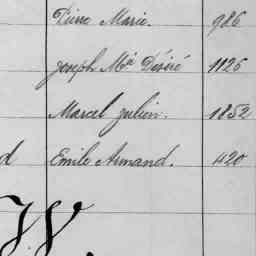 Pierre Marie. 986
Joseph Mie Désiré 1126
Marcel Julien. 1852
d Emile Armand. 420
W.